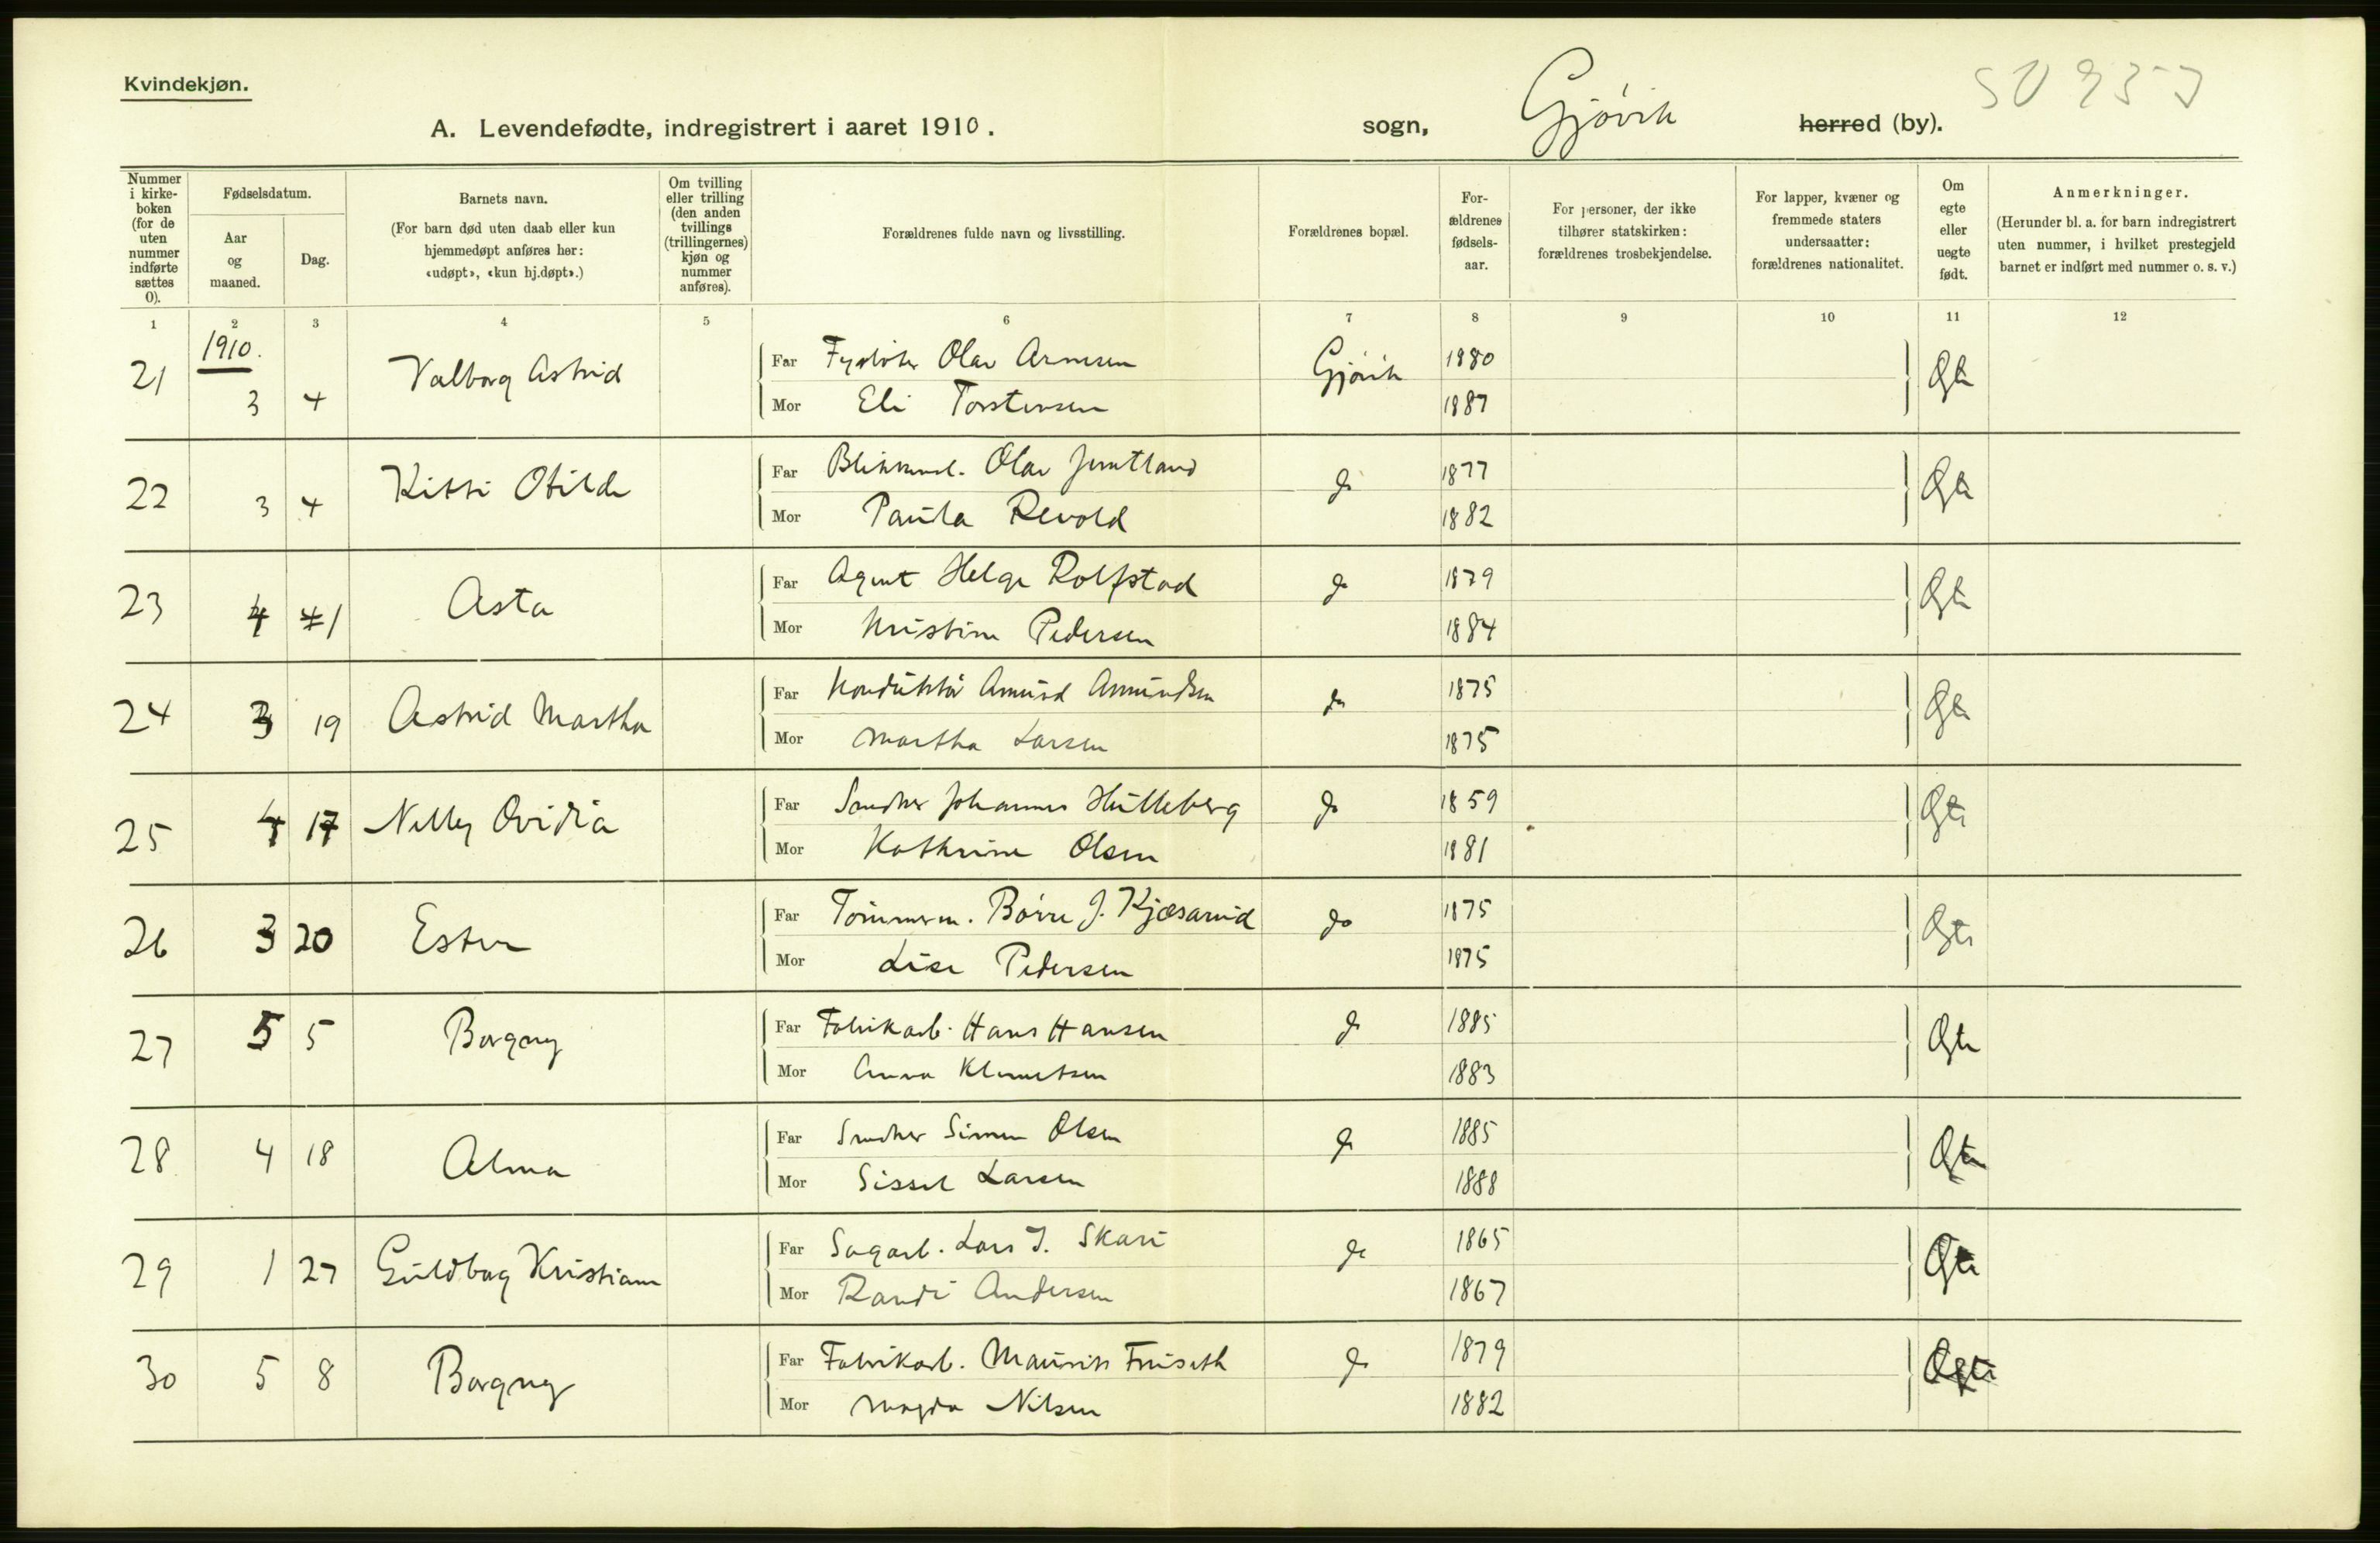 Kvindekjøn.
A. Levendefødte, indregistrert i aaret 1910. sogn, Gjøvik herred (by).
Nummer i kirkeboken (for de uten nummer indførte sættes 0).
Fødselsdatum.
Aar og maaned.
Dag.
Barnets navn.
(For barn død uten daab eller kun hjemmedøpt anføres her: «udøpt», «kun hj.døpt».)
Om tvilling eller trilling (den anden tvillings (trillingernes) kjøn og nummer anføres).
Forældrenes fulde navn og livsstilling.
Forældrenes bopæl.
Forældrenes fødselsaar.
For personer, der ikke tilhører statskirken: forældrenes trosbekjendelse.
For lapper, kvæner og fremmede staters undersaatter: forældrenes nationalitet.
Om egte eller uegte født.
Anmerkninger.
(Herunder bl. a. for barn indregistrert uten nummer, i hvilket prestegjeld barnet er indført med nummer o. s. v.)
1 2 3 4 5 6 7 8 9 10 11 12
1910.
21 3 4 Valborg Astrid Far Olav Arnesen Gjøvik 1880 Egte
Mor Eli Torstensen 1887
22 3 4 Kitti Otilde Far Olav Jemtland do 1877 Egte
Mor Paula Revold 1882
23 4 1 Asta Far Agent Helge Rolfstad do 1879 Egte
Mor Kristine Pedersen 1884
24 3 19 Astrid Martha Far Konduktør Amund Amundsen do 1875 Egte
Mor Martha Larsen 1875
25 4 17 Nelly Ovidia Far Snedker Johannes Hulleberg do 1859 Egte
Mor Kathrine Olsen 1881
26 3 20 Ester Far Tømmerm. Børre J. Kjøsarud do 1875 Egte
Mor Lise Pedersen 1875
27 5 5 Borgny Far Fabrikarb. Hans Hansen do 1885 Egte
Mor Anna Klemetsen 1883
28 4 18 Alma Far Snedker Simen Olsen do 1885 Egte
Mor Sissel Larsen 1888
29 1 27 Guldborg Kristiane Far Sagarb. Lars J. Skari do 1865 Egte
Mor Randi Andersen 1867
30 5 8 Borgny Far Fabrikarb. Mauritz Fruseth do 1879 Egte
Mor Magda Nilsen 1882